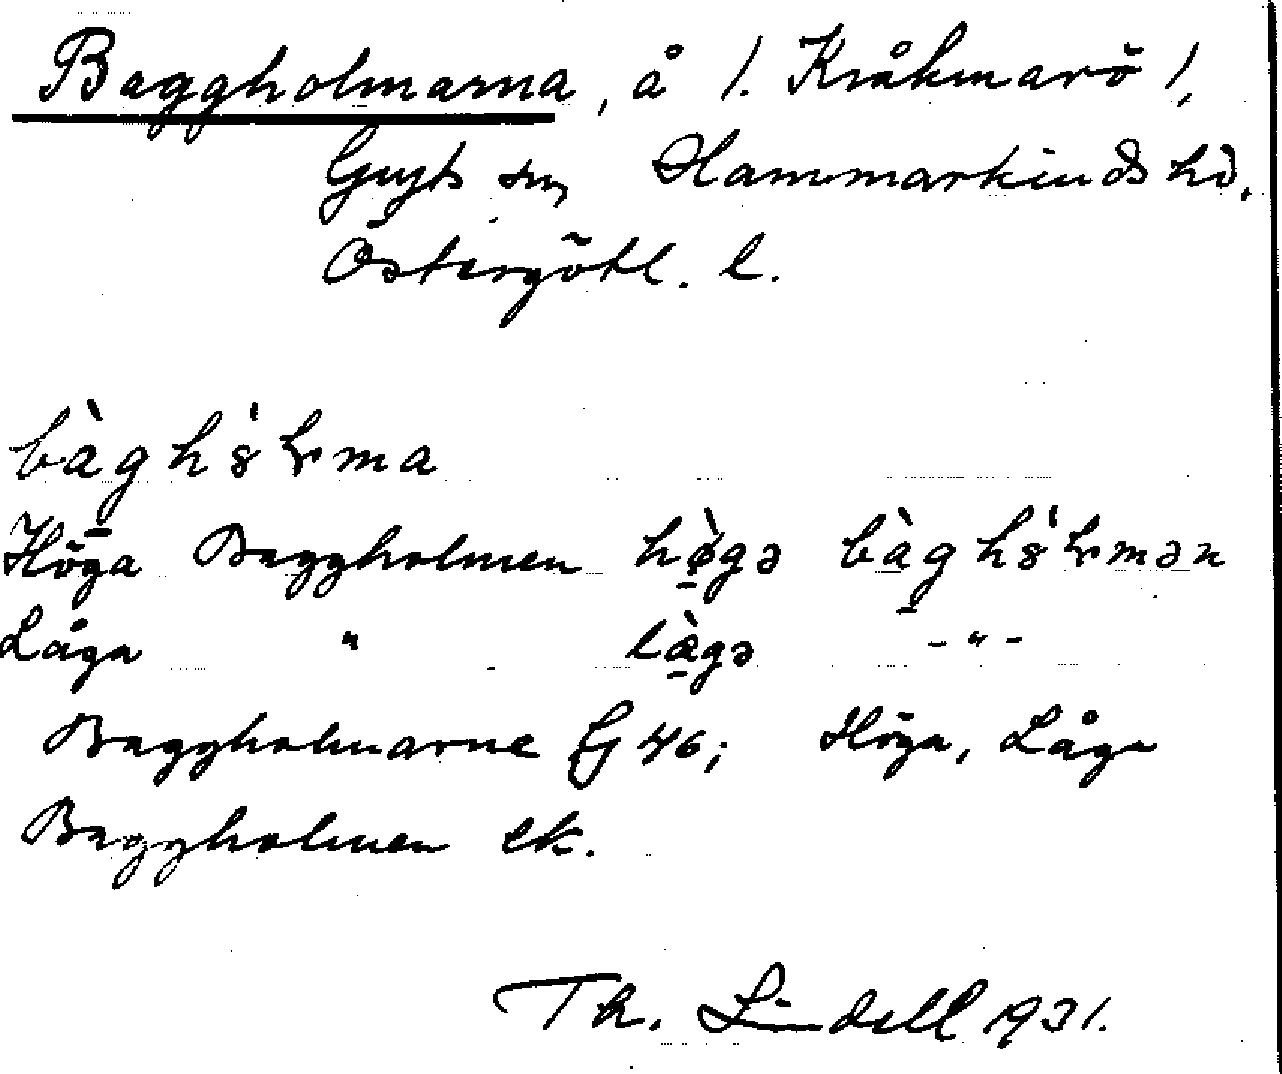 Baggholmarna, å 1. Kråkmarö 1,
Gryts sn, Hammarkinds hd.
Östergötl. l.
bàgh8̀ɽma
Höga Baggholmen hø̀gə bàgh8̀ɽmən
Låga " lå̀gə -"-
Baggholmarne G 46; Höga, Låga
Baggholmen ek.
Th. Lindell 1931.